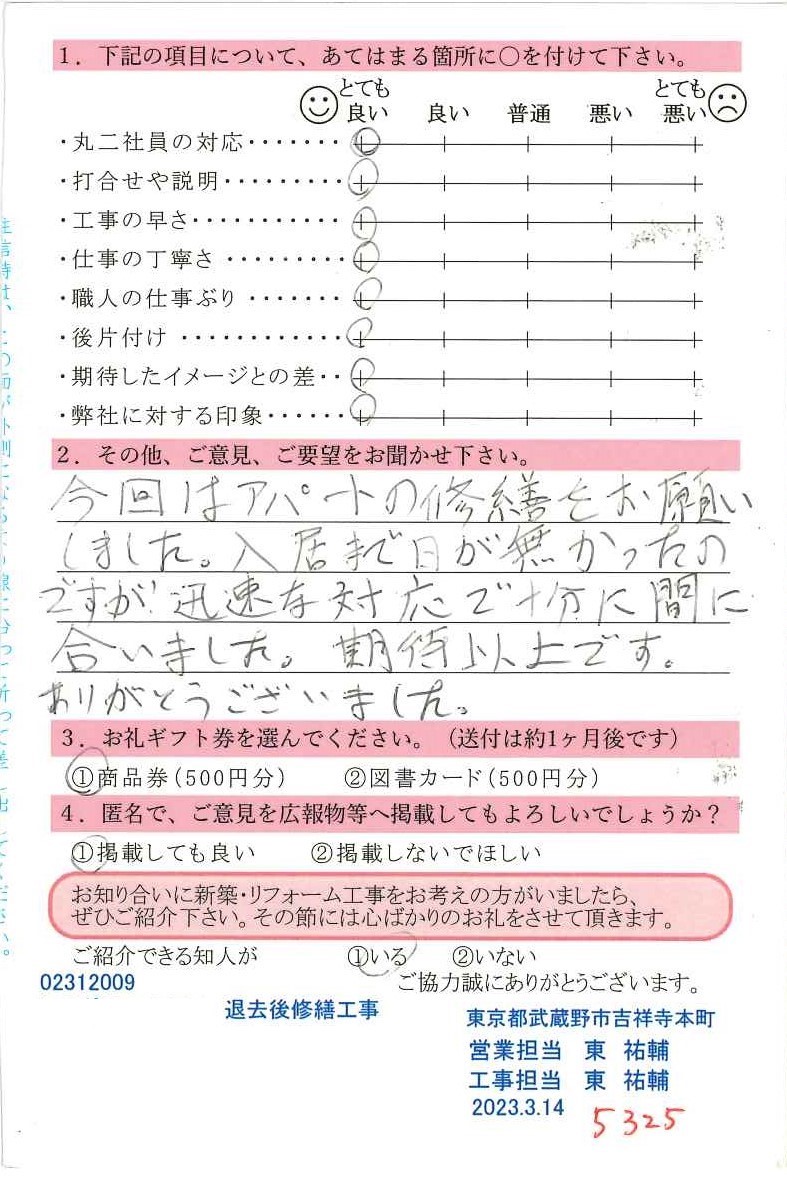 1．下記の項目について、あてはまる箇所に〇を付けて下さい。
とても良い 良い 普通 悪い とても悪い
・丸二社員の対応・・・・・・・
・打合せや説明・・・・・・・・・
・工事の早さ・・・・・・・・・・・
・仕事の丁寧さ・・・・・・・・・
・職人の仕事ぶり・・・・・・・
・後片付け・・・・・・・・・・・・
・期待したイメージとの差・・
・弊社に対する印象・・・・・・
2．その他、ご意見、ご要望をお聞かせ下さい。
今回はアパートの修繕をお願い
しました。入居まで日が無かったの
ですが迅速な対応で十分に間に
合いました。期待以上です。
ありがとうございました。
3．お礼ギフト券を選んでください。（送付は約1ヶ月後です）
①商品券（500円分） ②図書カード（500円分）
4．匿名で、ご意見を広報物等へ掲載してもよろしいでしょうか？
①掲載しても良い ②掲載しないでほしい
お知り合いに新築・リフォーム工事をお考えの方がいましたら、
ぜひご紹介下さい。その節には心ばかりのお礼をさせて頂きます。
ご紹介できる知人が ①いる ②いない
ご協力誠にありがとうございます。
02312009
退去後修繕工事
東京都武蔵野市吉祥寺本町
営業担当 東 祐輔
工事担当 東 祐輔
2023.3.14
5325